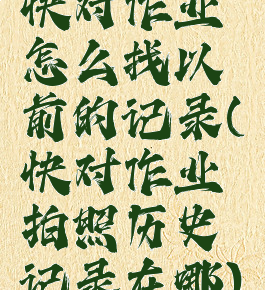 快对作业
怎么找以
前的记录(
快对作业
拍照历史
记录在哪)